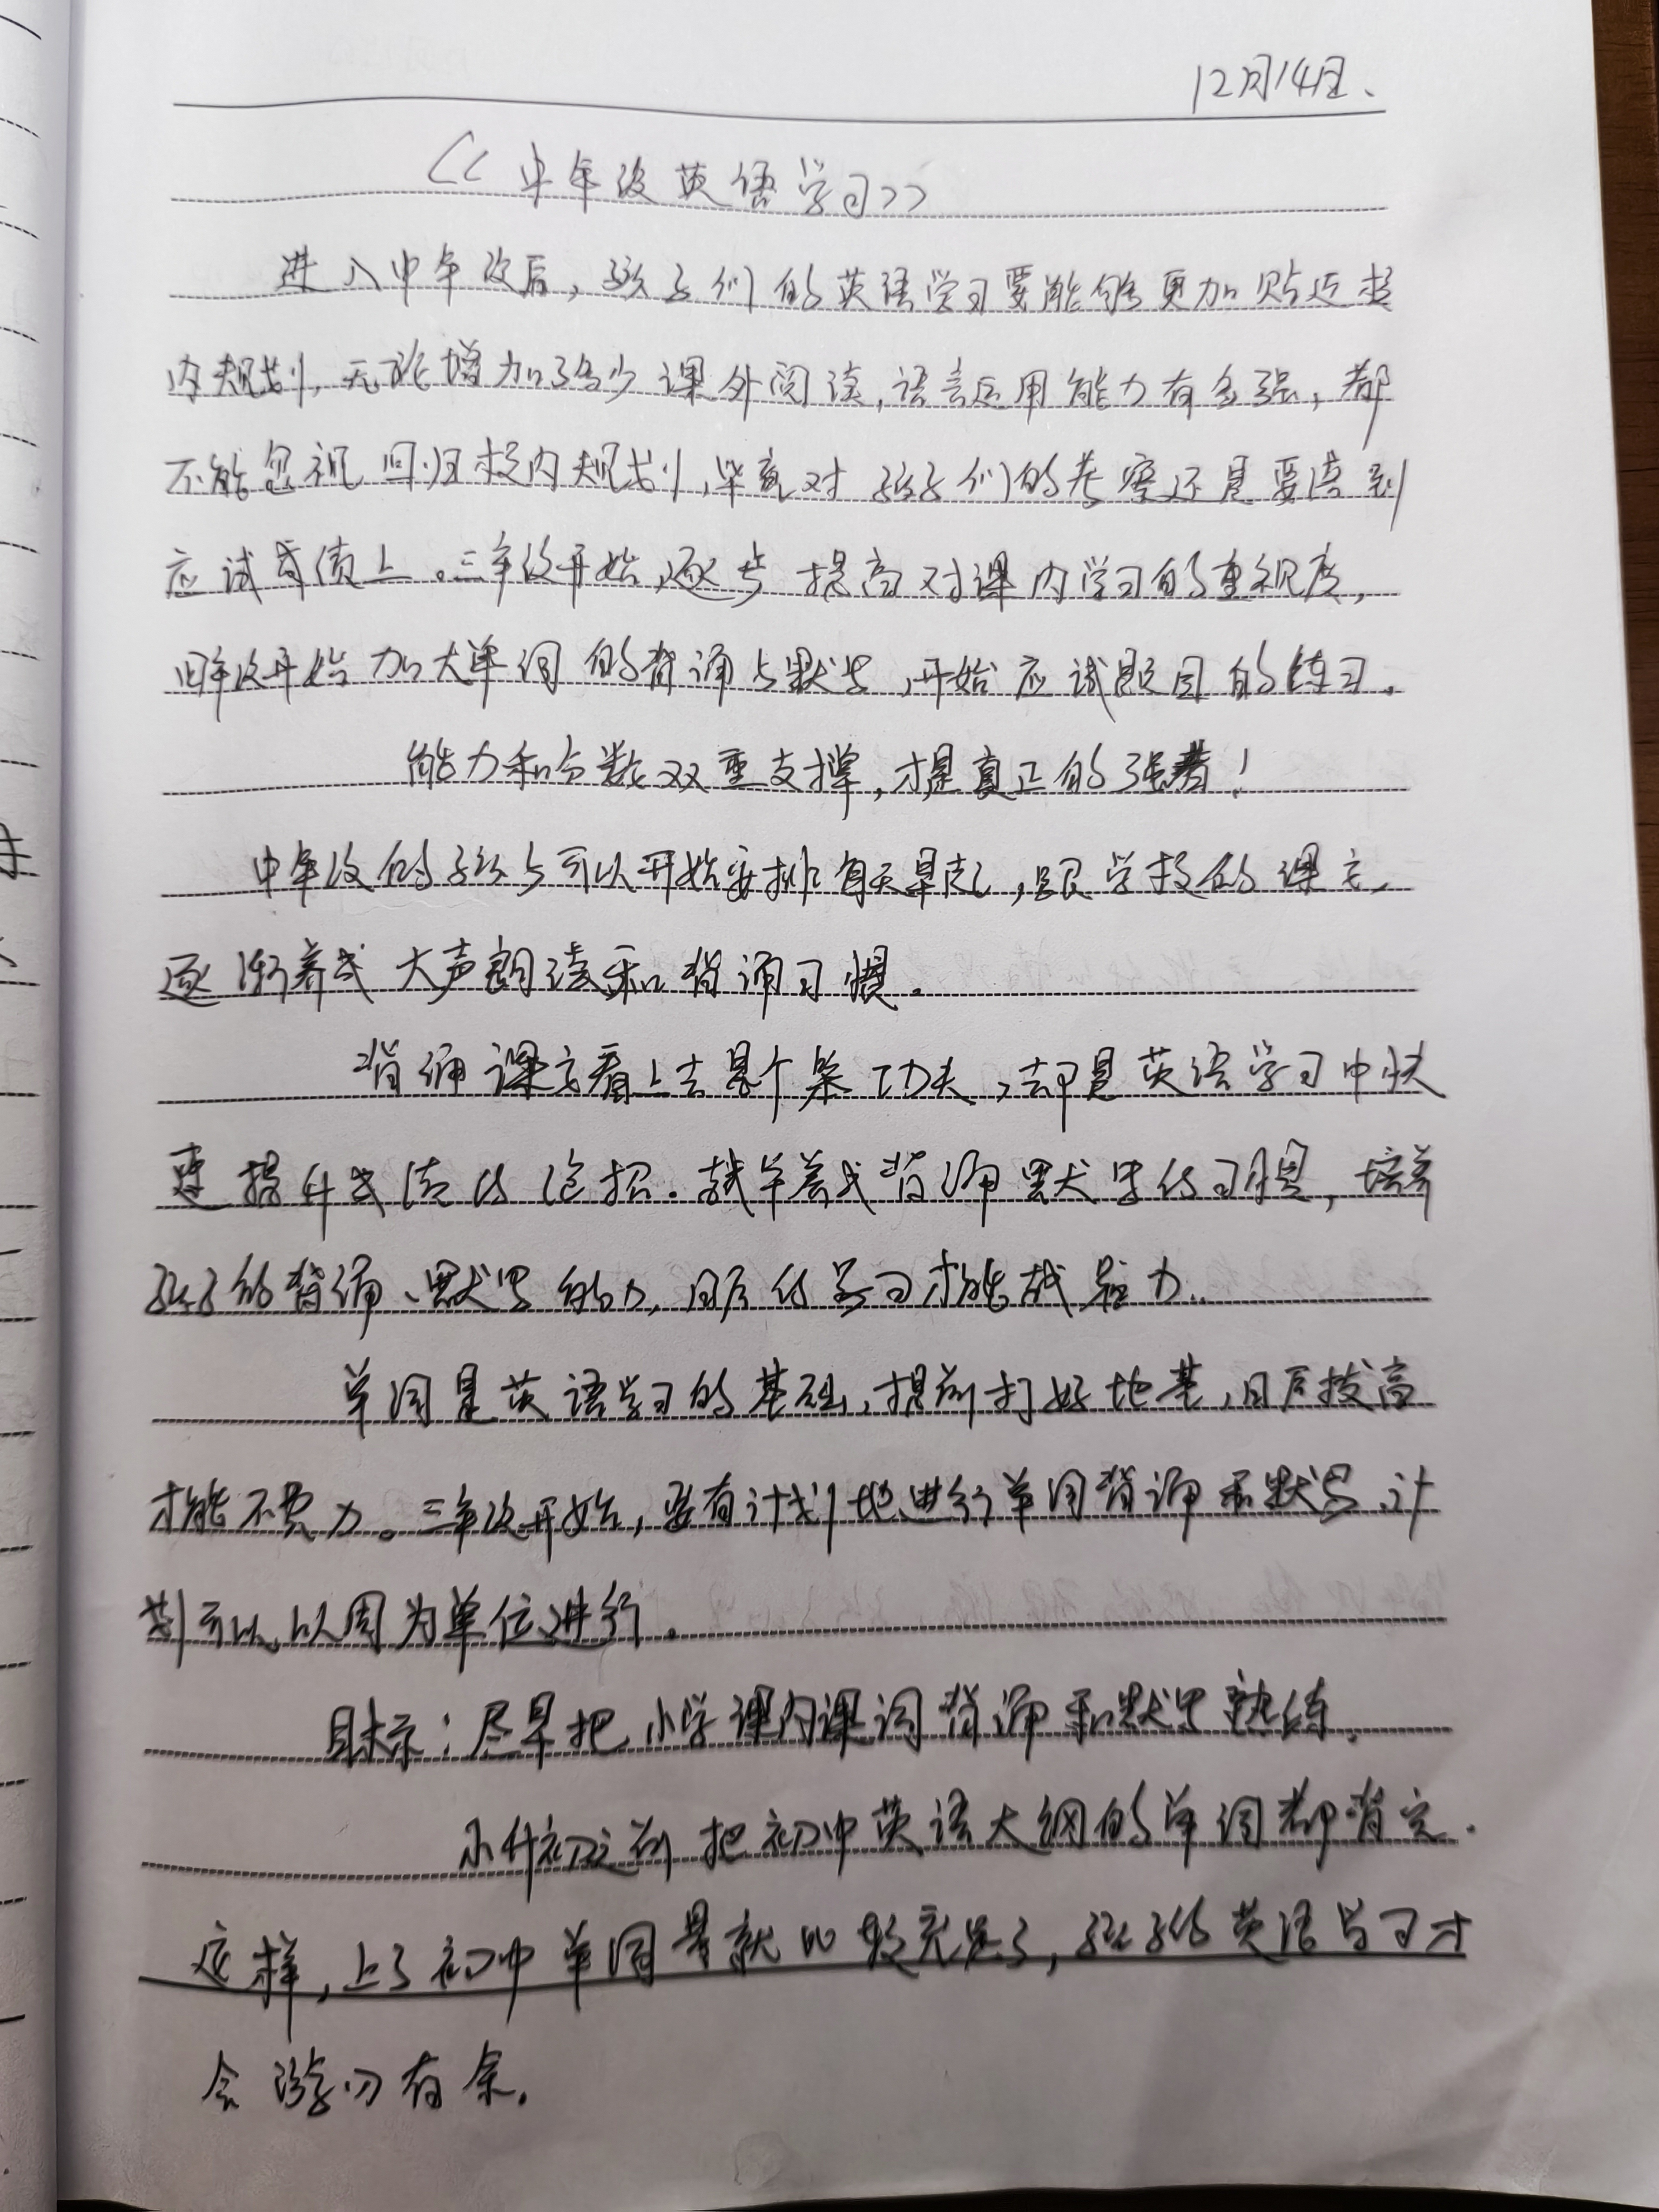 12月14日、
《中年段英语学习》
进入中年段后，孩子们的英语学习要能够更加贴近校
内规划，无论增加了多少课外阅读，语言运用能力有多强，都
不能忽视回归校内规划，毕竟对孩子们的考察还是要落到
应试成绩上。三年级开始，逐步提高对课内学习的重视度，
四年级开始加大单词的背诵与默写，开始应试题目的练习。
能力和分数双重支撑，才是真正的强者！
中年段的孩子可以开始安排每天早起，跟学校的课文，
逐渐养成大声朗读和背诵习惯。
背诵课文看上去是个笨功夫，却是英语学习中快
速提升成绩的绝招。越早养成背诵默写的习惯，培养
孩子的背诵、默写能力，日后的学习才能越轻力。
单词是英语学习的基础，提前打好地基，日后拔高
才能不费力。三年级开始，要有计划地进行单词背诵和默写，计
划可以以周为单位进行。
目标：尽早把小学课内课词背诵和默写熟练。
小升初之前把初中英语大纲的单词都背完.
这样，上了初中单词量就比较充足了，孩子的英语学习才
会游刃有余。